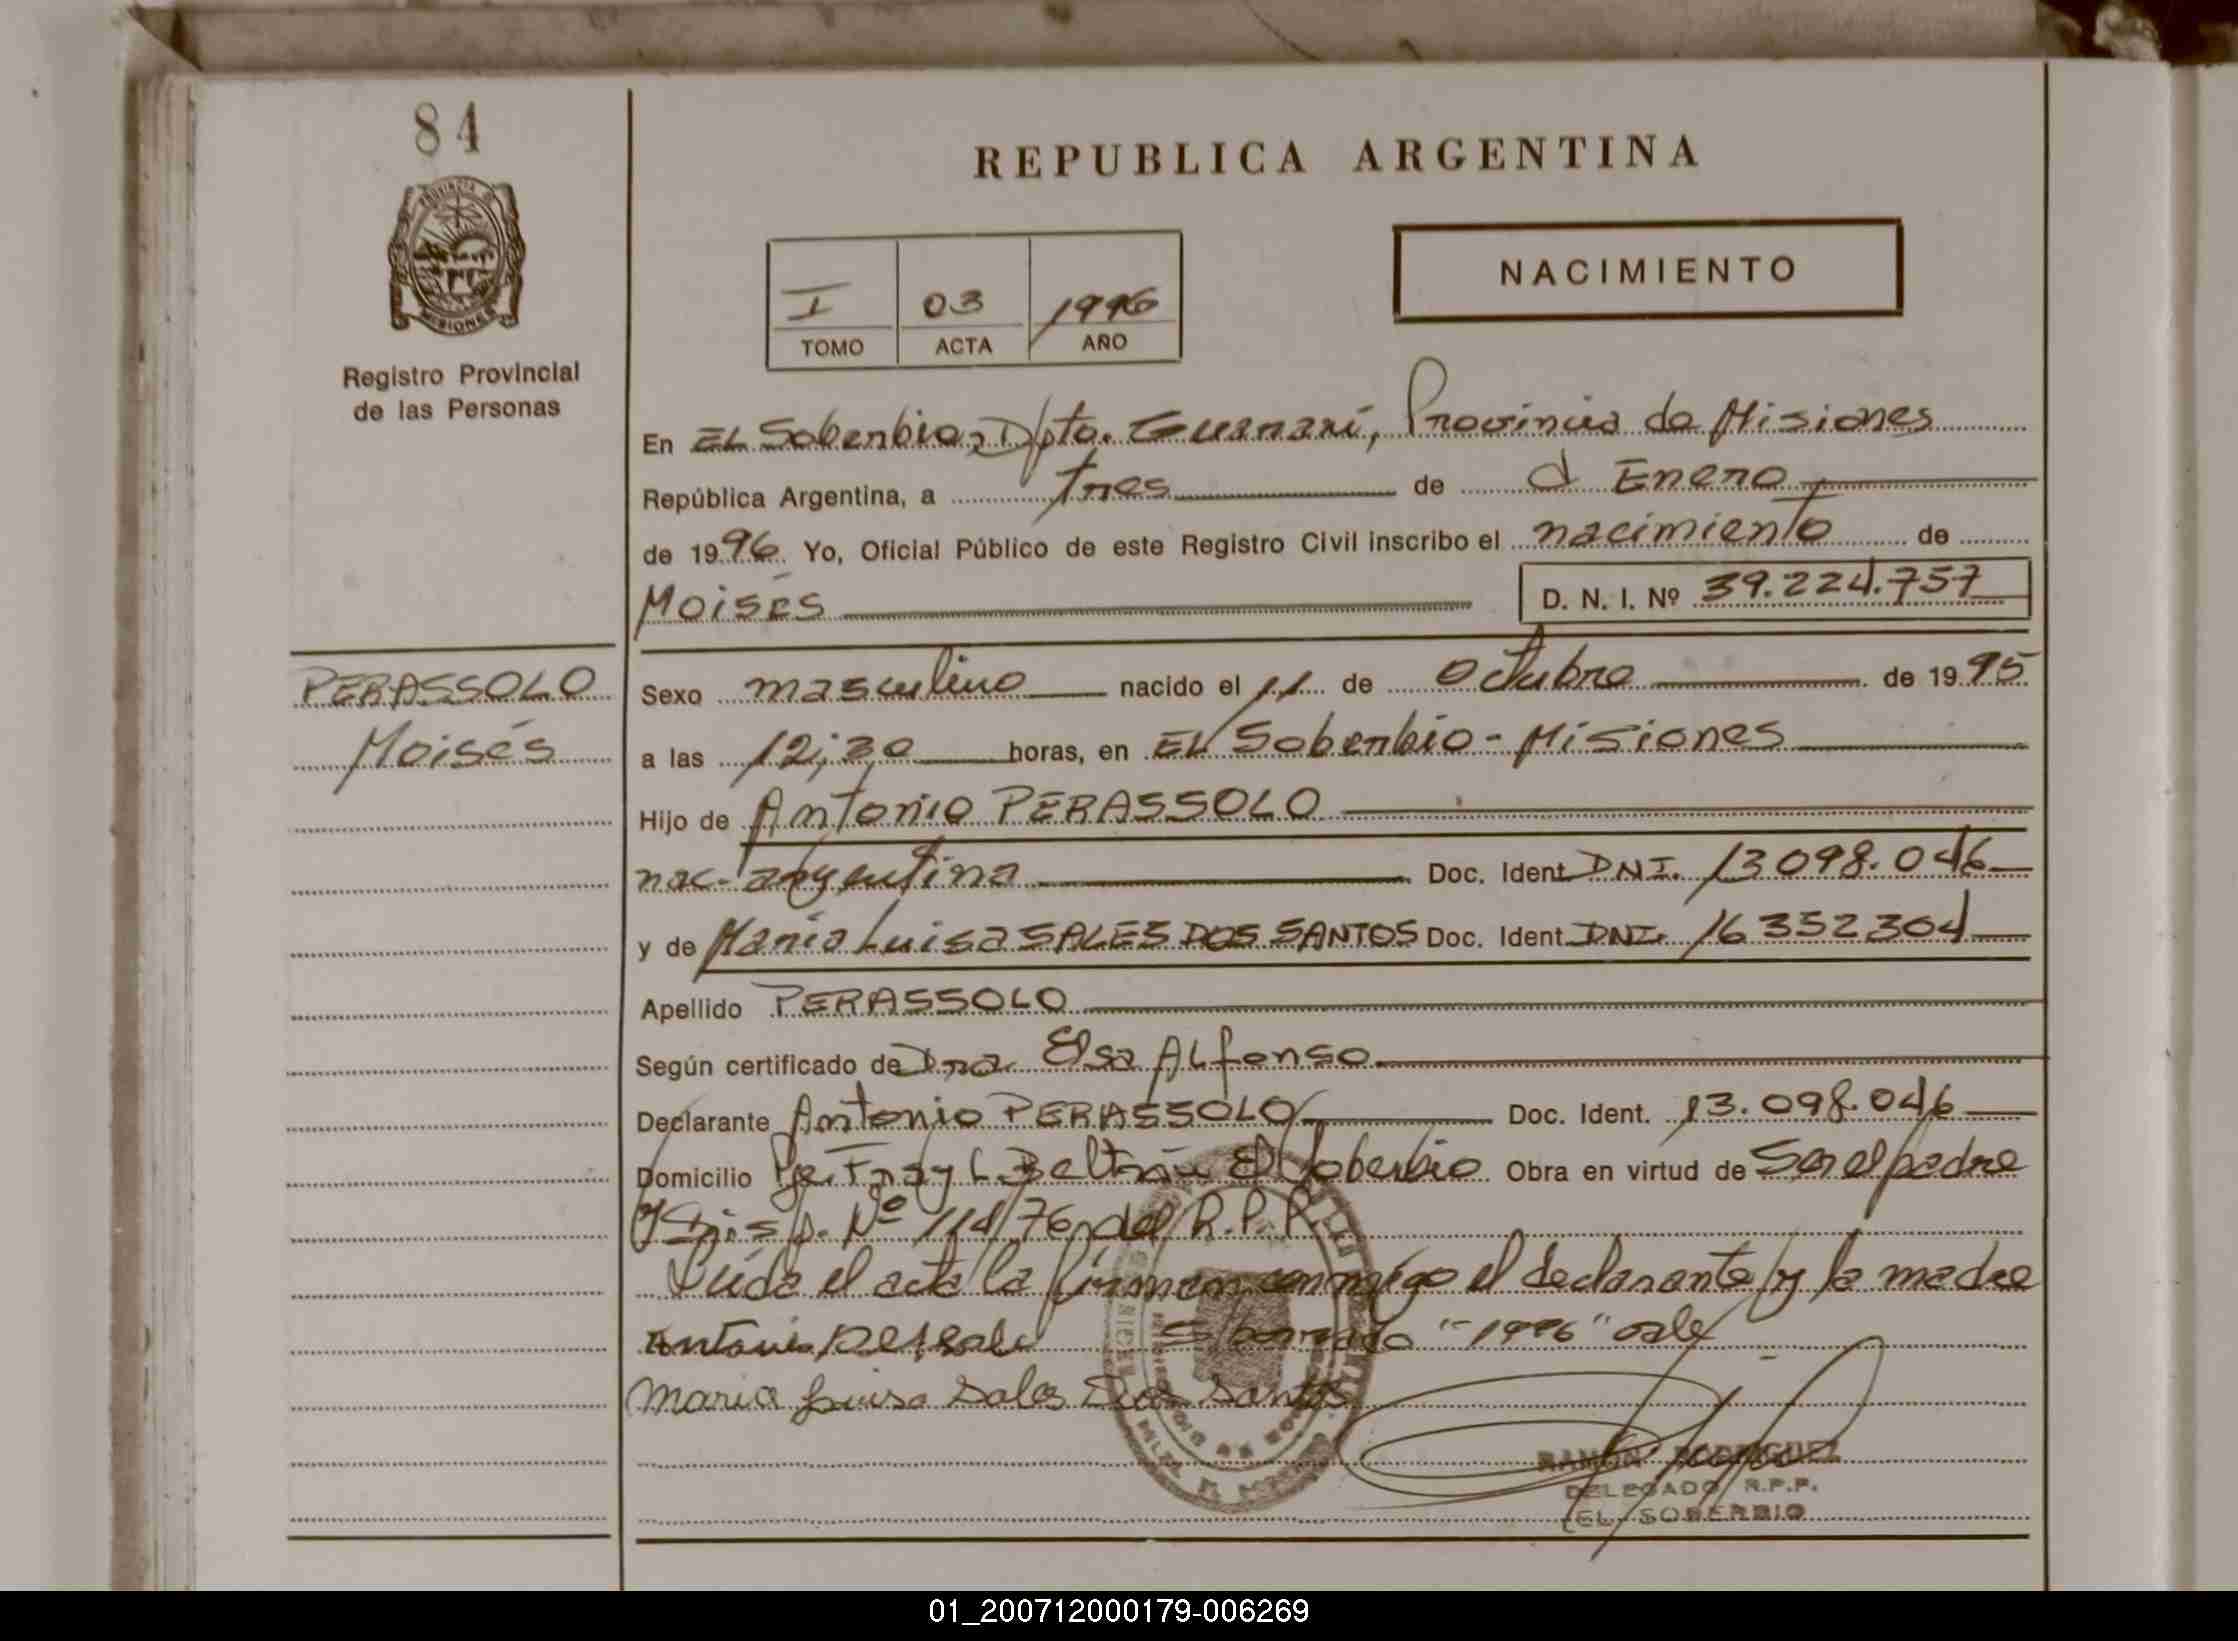 84
REPUBLICA ARGENTINA
PROVINCIA DE
MISIONES
Registro Provincial
de las Personas
I 03 1996
TOMO ACTA AÑO
NACIMIENTO
En EL Soberbio, Dpto. Guaraní, Provincia de Misiones
República Argentina, a tres de d Enero
de 1996. Yo, Oficial Público de este Registro Civil inscribo el nacimiento de
Moisés D. N. I. Nº 39.224.757
PERASSOLO
Moisés
Sexo masculino nacido el 11 de Octubre de 1995
a las 12;30 horas, en EL Soberbio - Misiones
Hijo de Antonio PERASSOLO
nac. argentina Doc. Ident. DNI. 13098.046
y de María Luisa SALES DOS SANTOS Doc. Ident. DNI. 16352304
Apellido PERASSOLO
Según certificado de Dra Elsa ALfonso
Declarante Antonio PERASSOLO Doc. Ident. 13.098.046
Domicilio Fray L Beltrán El Soberbio Obra en virtud de Ser el padre
y Disp. Nº 114/76, del R.P.P.
Leída el acta la firman conmigo el declarante y la madre
Antonio S/borrado "1996" vale
Maria Luisa Sales Dos Santos
RAMON RODRIGUEZ
DELEGADO R.P.P.
EL SOBERBIO
01_200712000179-006269